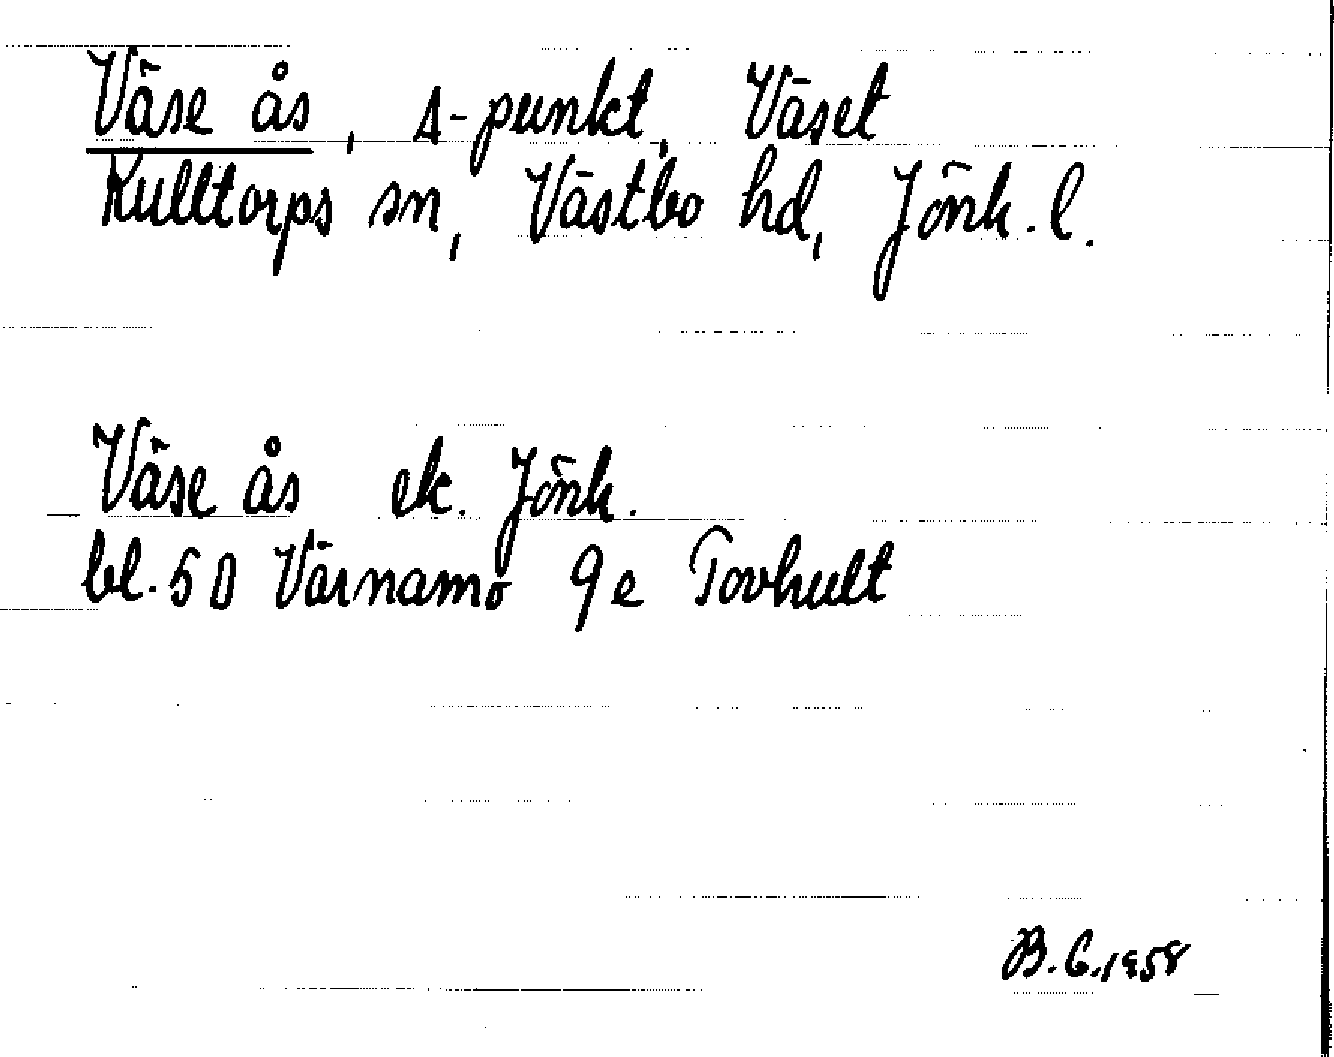 Väse ås, Δ-punkt, Väset
Kulltorps sn, Västbo hd, Jönk. l.
Väse ås ek. Jönk.
bl. 5 D Värnamo 9 e Tovhult
B.G. 1958